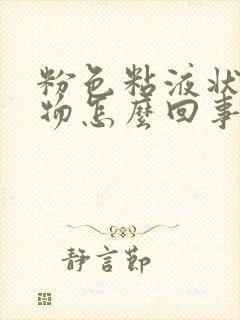 粉色粘液状
物怎麼回事
靜言節